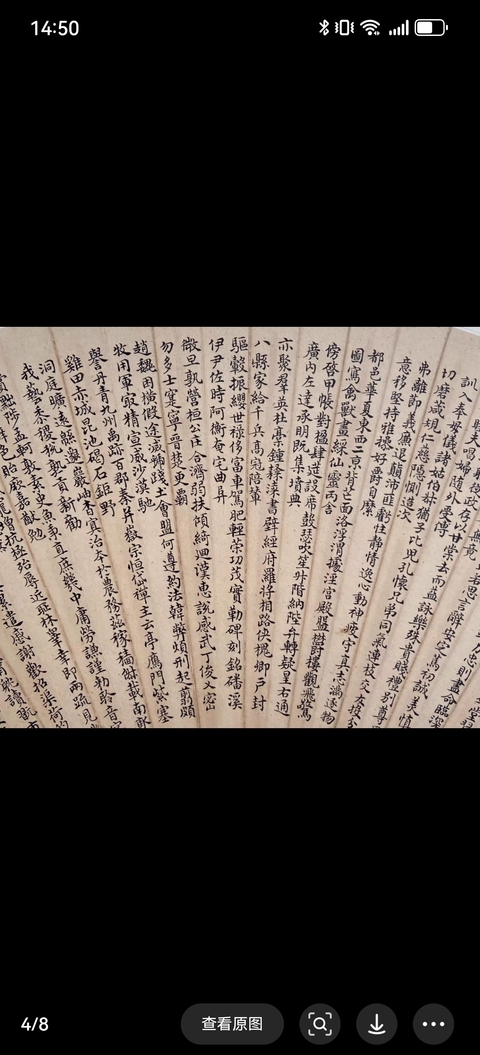 14:50
夫唱婦隨外受傅
訓入奉母儀諸姑伯叔猶子比兒孔懷兄弟同氣連枝交友投分
切磨箴規仁慈隱惻造次
弗離節義廉退顛沛匪虧性靜情逸心動神疲守真志滿逐物
意移堅持雅操好爵自縻
都邑華夏東西二京背芒面洛浮渭據涇宮殿盤鬱樓觀飛驚
圖寫禽獸畫綵仙靈丙舍
傍啓甲帳對楹肆筵設席鼓瑟吹笙升階納陛弁轉疑星右通
廣內左達承明既集墳典
亦聚羣英杜稾鍾隸漆書壁經府羅將相路俠槐卿戶封
八縣家給千兵高冠陪輦
驅轂振纓世祿侈富車駕肥輕策功茂實勒碑刻銘磻溪
伊尹佐時阿衡奄宅曲阜
微旦孰營桓公匡合濟弱扶傾綺迴漢惠說感武丁俊乂密
勿多士寔寧晉楚更霸
趙魏困橫假途滅虢踐土會盟何遵約法韓弊煩刑起翦頗
牧用軍最精宣威沙漠馳
譽丹青九州禹跡百郡秦并嶽宗恒岱禪主云亭雁門紫塞
雞田赤城昆池碣石鉅野
洞庭曠遠緜邈巖岫杳冥治本於農務茲稼穡俶載南畝
我藝黍稷稅熟貢新勸
賞黜陟孟軻敦素史魚秉直庶幾中庸勞謙謹勑聆音
4/8
查看原图